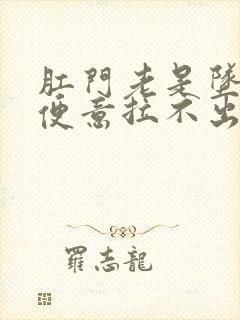 肛門老是墜
便意拉不出
羅志龍